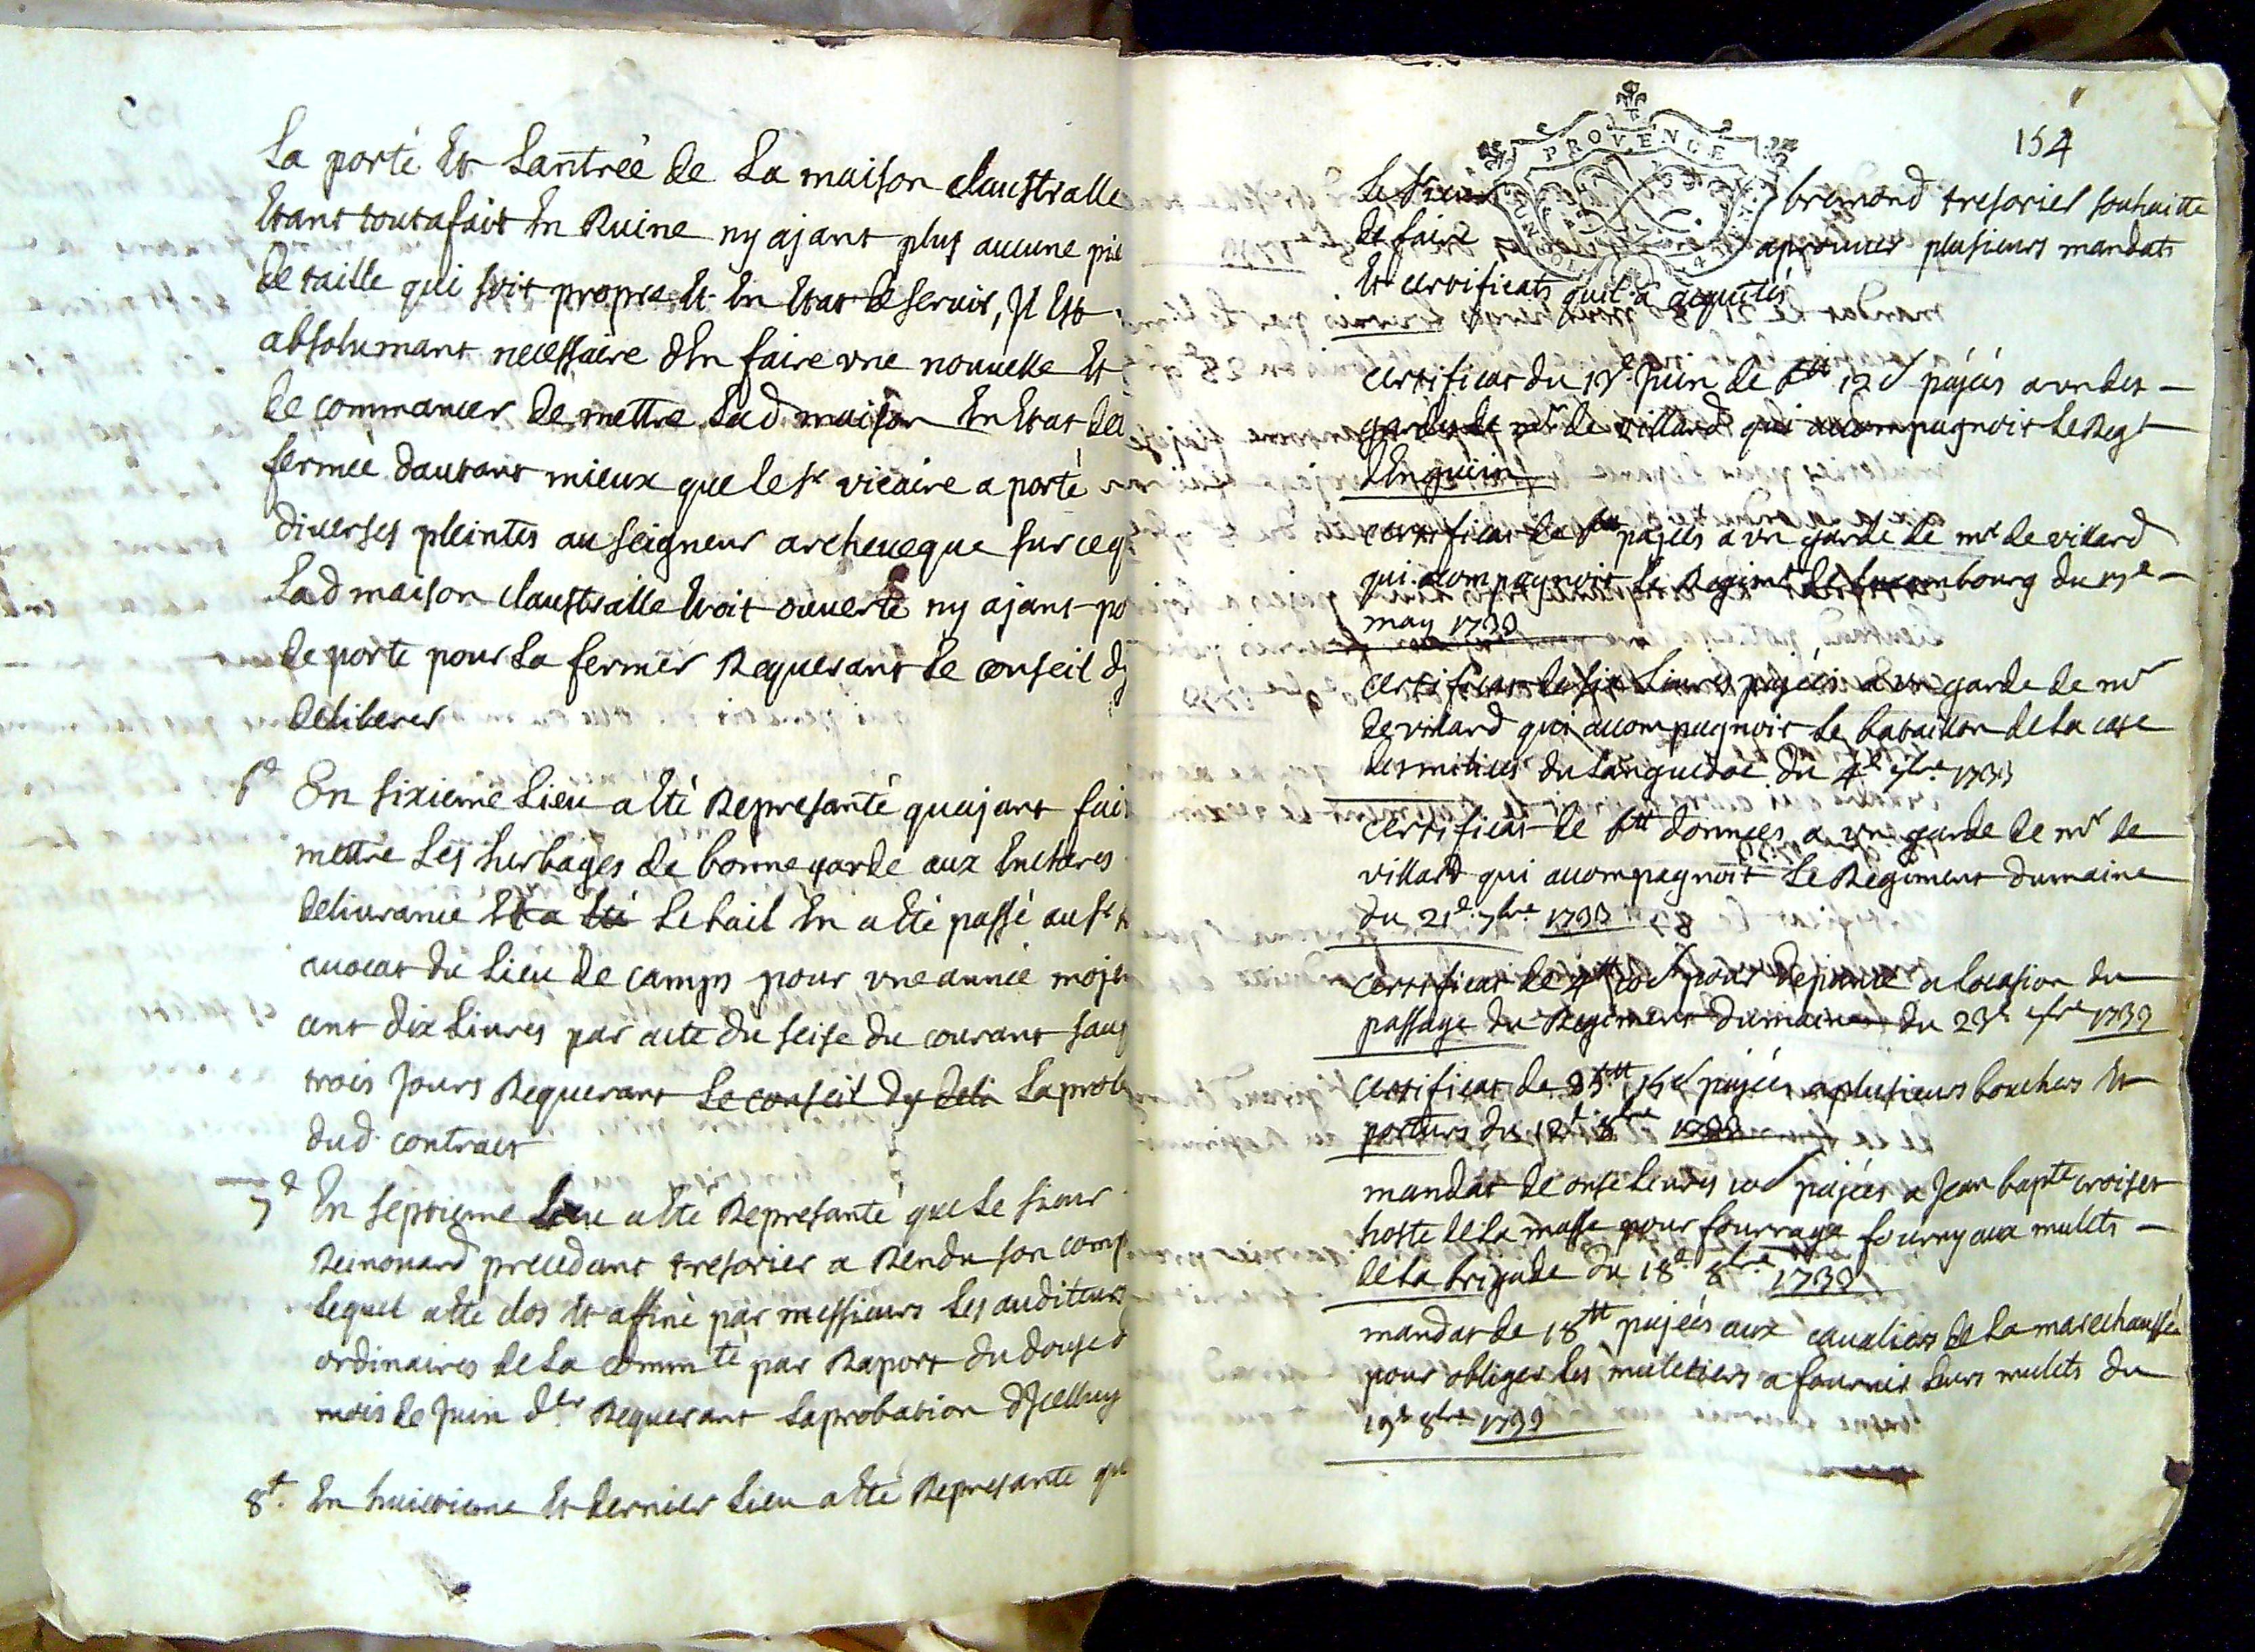 La porte Et Lantrèè de La maison claustralle
Etant toutafait En Ruine ny ajant plus aucune pie
de taille qui soit propre Et En Etat de servir, Il Est
absolumant necessaire dEn faire vne nouuelle Et
de commancer de mettre Lad maison En Etat de
fermèe dautant mieux que le sr vicaire a portè
diuerses pleintes au seigneur archeueque sur ceq
Lad maison claustralle Etoit ouuerte ny ajant po
de porte pour La fermer Requerant Le conseil dy
deliberer
6e En sixieme Lieu a Etè Represantè quajant fait
mettre Les herbages de bonne garde aux Encheres
deliurance Et a Etè Le bail En a Etè passè au sr
auocat du Lieu de camps pour vne annèe mojen
cent dix Liures par acte du seise du courant sous
trois Jours Requerant Le conseil dy deli Laprob
dud. contract
7e En septieme Lieu a Etè Represantè que Le sieur
Reinouard precedant tresorier a Rendu son comp
Lequel a Ete clos Et affinè par messieurs Les auditeurs
ordinaires de La commtè par Raport du douse d
mois de Juin der Requerant Laprobation dIcelluy
8e. En huictieme Et dernier Lieu a Etè Represantè qu
154
PROVENCE
Le sieur bremond tresorier souhaitte
de faire aprouuer plusieurs mandats
Et certificats quil a aquités
certificat du 13e Juin de 6tt 12s pajéés a vn des
gardes de mr de villard qui accompagnoit Le Regt
dEnguien
certificat de 6tt pajéés a vn garde de mr de villard
qui acompagnoit Le Regimt de Luxembourg du
may 1733
certificat de six Liures pajéés a vn garde de mr
de villard qui accompagnoit Le bataillon de La
des milices du Languedoc du 4e 7bre 1733
certificat de 6tt données a vn garde de mr de
villard qui accompagnoit Le Regiment dumaine
du 21e. 7bre 1733
certificat de 4tt 10s pour depance a Locasion du
passage du Regiment dumaine du 23e 7bre 1733
certificat de 15s pajéés a plusieurs bouchers Et
porteurs du 12e 8bre 1733
mandat de onse Liures 10s pajéés a Jean bapte croiset
hoste de La masse pour fourrage fourny aux mulets
de La brigade du 18e 8bre 1733
mandat de 18tt pajéés aux caualiers de La marechaussée
pour obliger Les muletiers a fournir Leurs mulets du
19e 8bre 1733